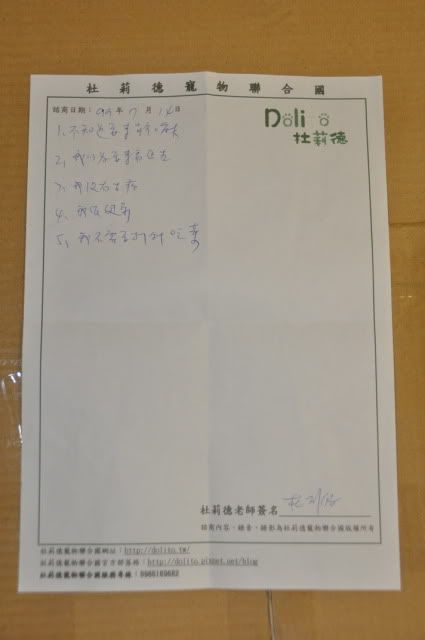 杜莉德寵物聯合國
諮商日期：99年7月14日
Doli
杜莉德
1、不知道
2、我
3、我沒有生病
4、我
5、我不需要打針吃藥
杜莉德老師簽名
諮商內容、錄音、錄影為杜莉德寵物聯合國版權所有
杜莉德寵物聯合國網址：http://dolito.tw/
杜莉德寵物聯合國官方部落格：http://dolito.pixnet.net/blog
杜莉德寵物聯合國服務專線：0988169682